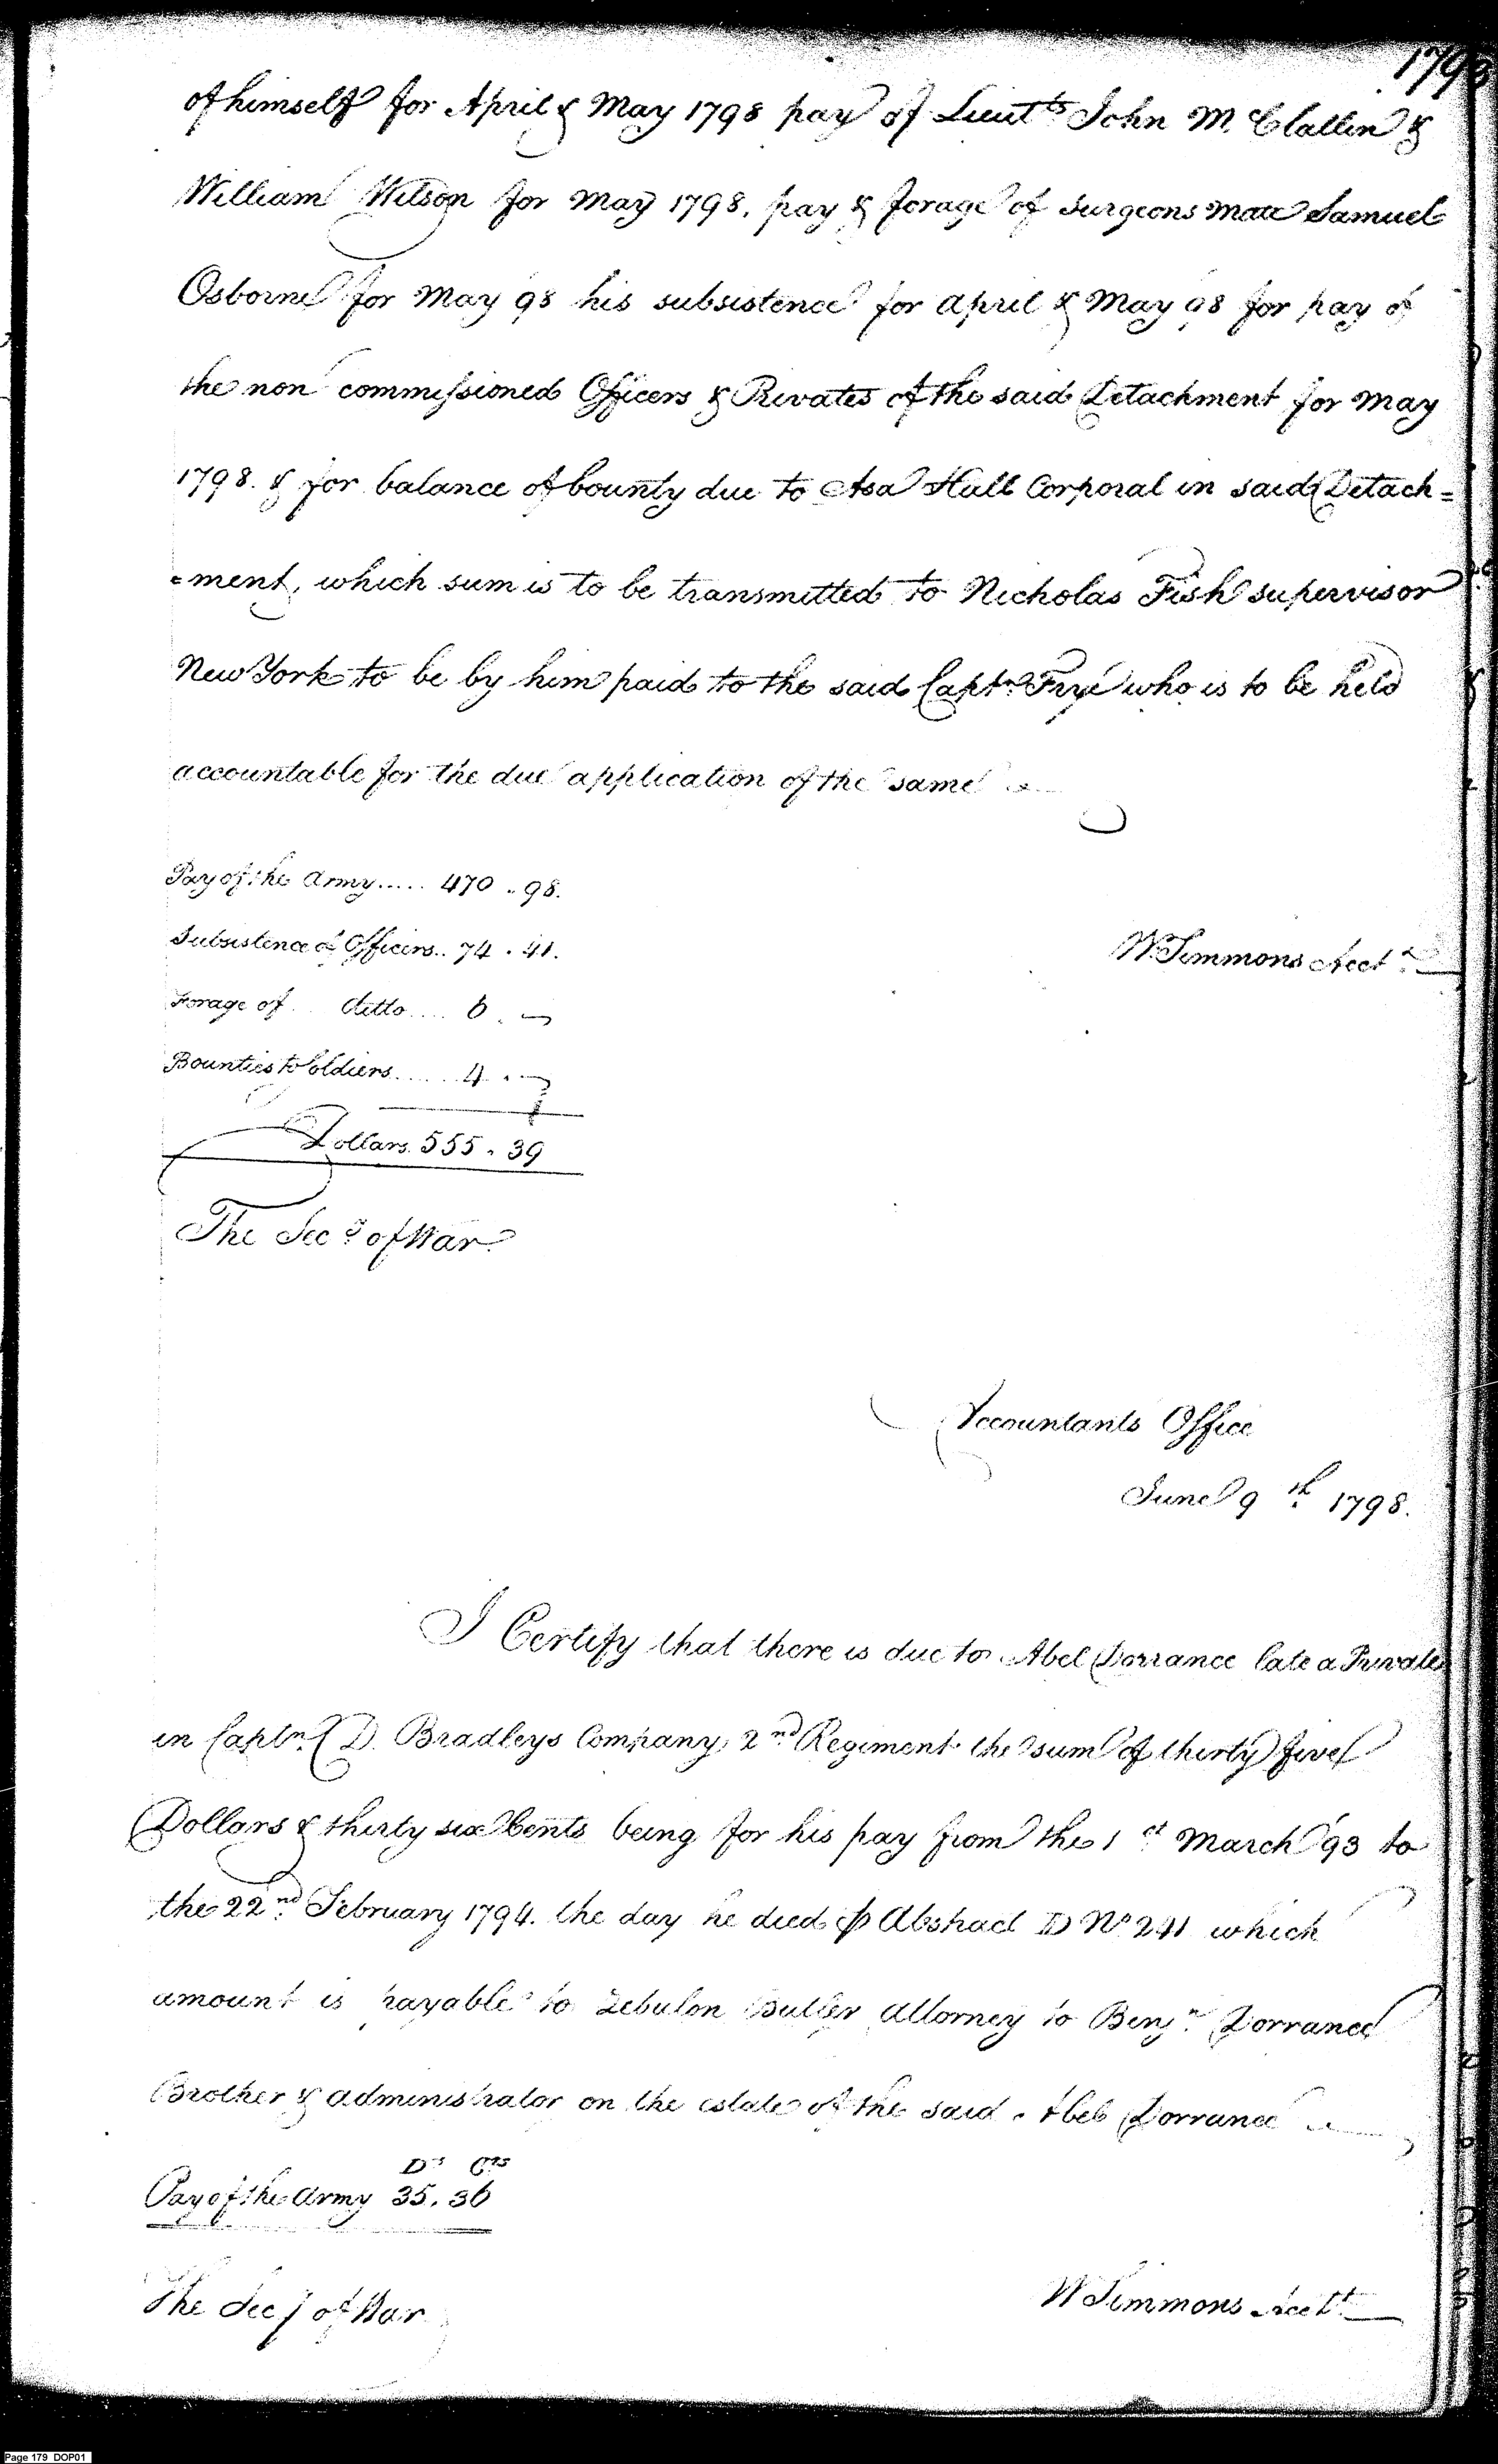 1798
of himself for April & May 1798 pay of Lieutts John McClallen &
William Wilson for May 1798, pay & forage of surgeons mate Samuel
Osborne for May 98 his subsistence for april & May 98 for pay of
the non commissioned Officers & Privates of the said Detachment for May
1798. & for balance of bounty due to Asa Hall Corporal in said Detach=
=ment, which sum is to be transmitted to Nicholas Fish supervisor
New York to be by him paid to the said Captn. Frye who is to be held
accountable for the due application of the same
Pay of the Army..... 470 . 98.
Subsistence of Officers.. 74 . 41.
W. Simmons Acct.
Forage of ditto.... 6 . —
Bounties to Soldiers..... 4 . —
Dollars. 555 . 39
The Secy of War
Accountants Office
June 9th. 1798.
I Certify that there is due to Abel Dorrance late a Private
in Captn. D. Bradleys Company, 2nd Regiment the sum of thirty five
Dollars & thirty six Cents being for his pay from the 1st March 93 to
the 22nd. February 1794. the day he died ⅌ Abstract D No 241 which
amount is payable to Zebulon Butler Attorney to Benjn. Dorrance
Brother & administrator on the estate of the said Abel Dorrance
Ds Cts
Pay of the Army 35. 36
The Secy of War
W Simmons Acctt.
Page 179 DOP01